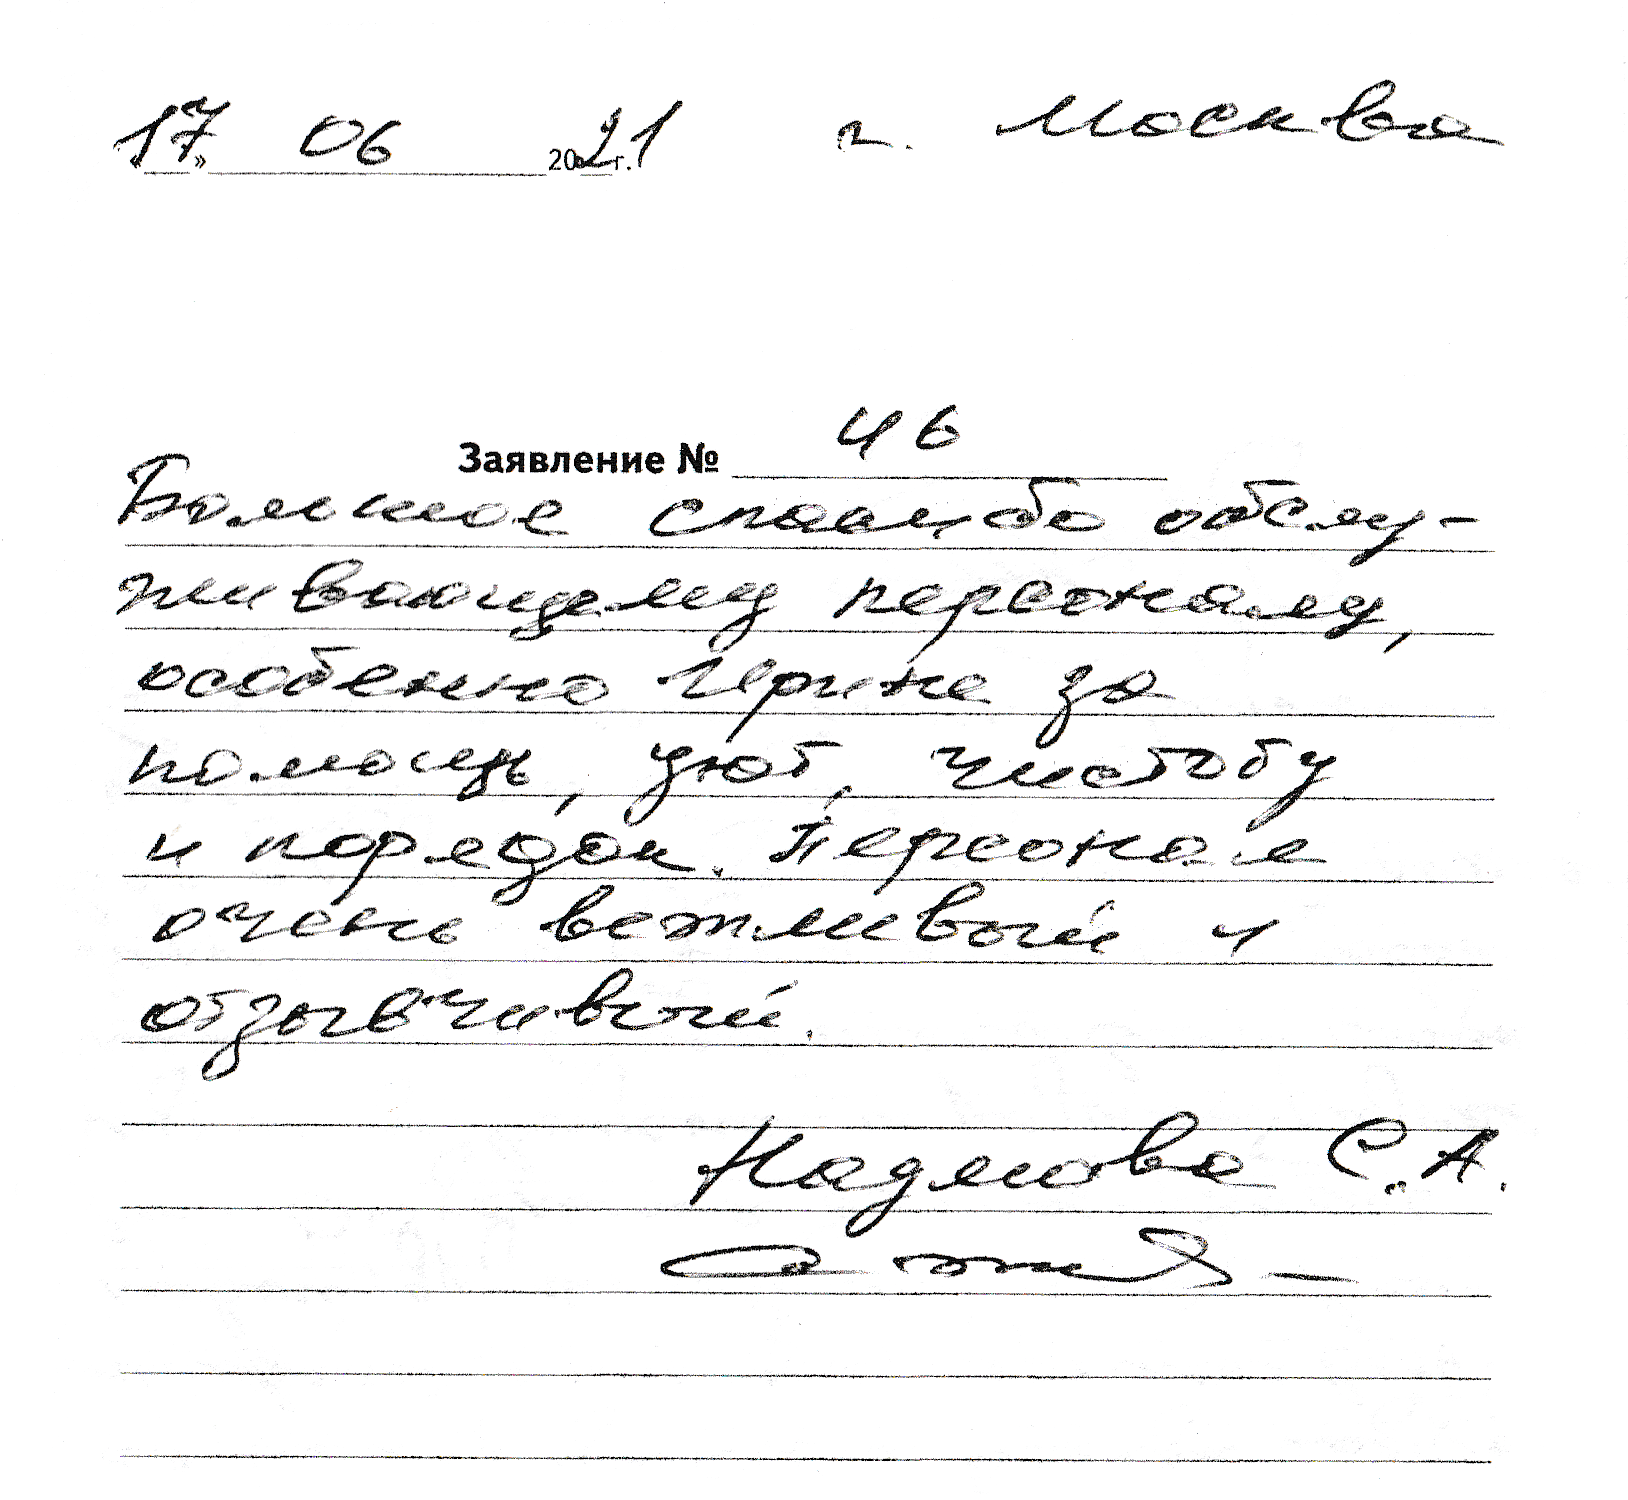 «17» 06 2021 г. г. Москва
Заявление № 46
Большое спасибо обслу-
живающему персоналу,
особенно Герине за
помощь, уют, чистоту
и порядок. Персонал
очень вежливый и
отзывчивый.
С.А.